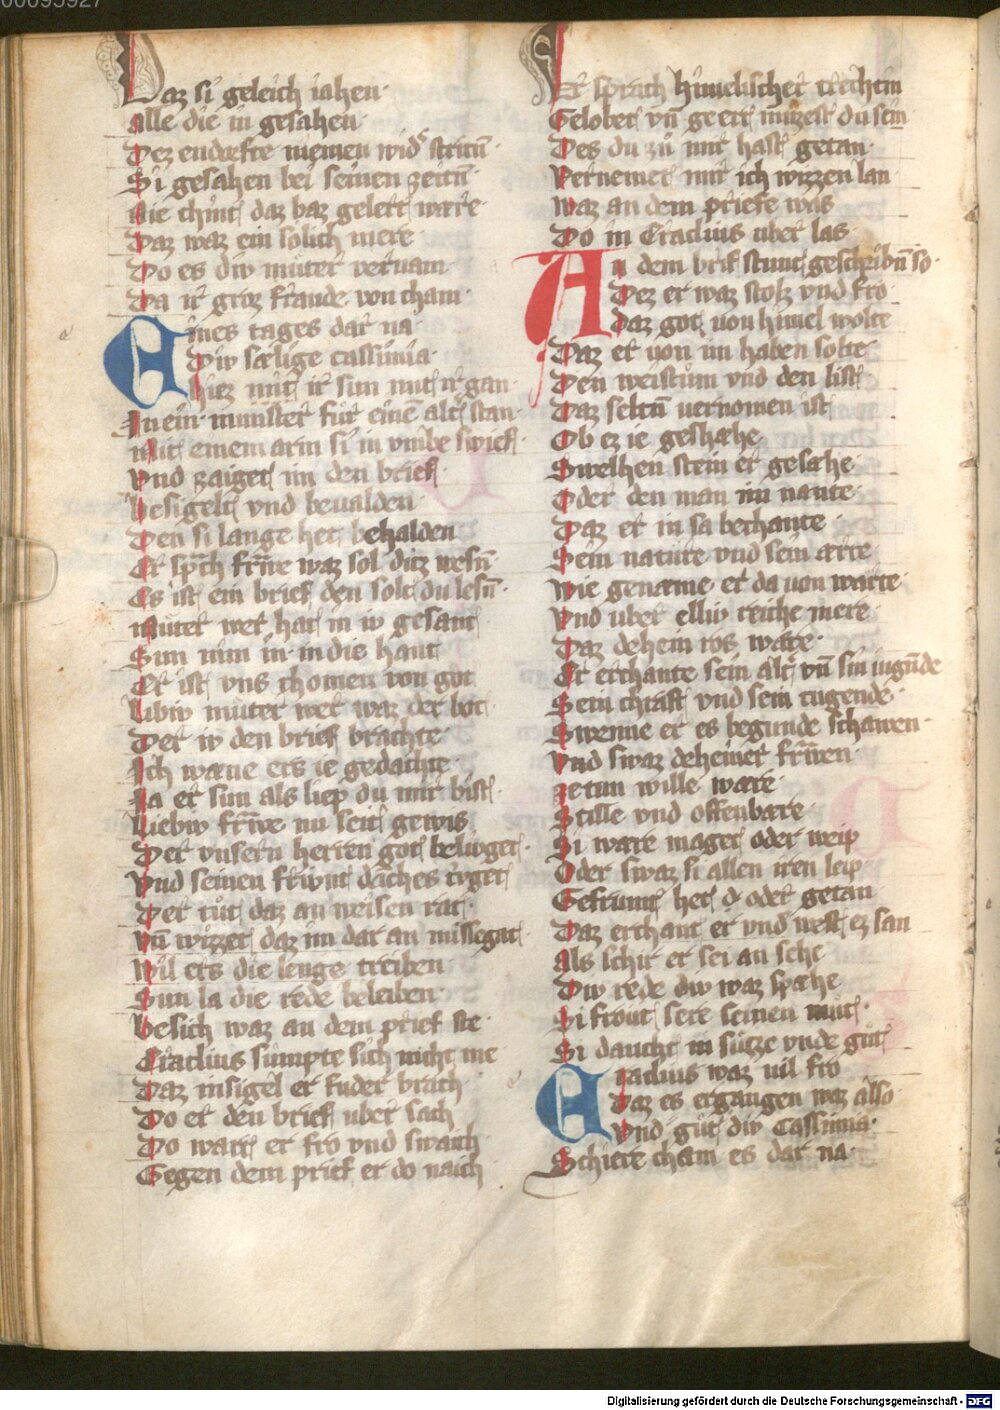 00095927
Daz si geleich iahen·
Alle die in gesahen·
Dez endorfte niemen wid͛ striten̄·
Si gesahen bei seinen zeiten̄·
Nie chint daz baz gelert were·
Daz waz ein solich mere·
Do es div můter vernam·
Da ir groz fraude von cham·
Eines tages dar na
Div sælige cassinia·
hiez mit ir sun mit ir gan·
In ein munster fur einē alt͛ stan·
Mit einem arm si in vmbe swief·
Vnd zaiget im den brief·
besigelt vnd bevalden·
Den si lange het behalden
Er sprach frīve waz sol ditz wesen̄·
Es ist ein brief den solt du lesen̄·
Můter wer hat in iv gesant
Sun nim in in die hant
Er ist vns chomen von got
Libiv můter wer waz der bot·
Der iv den brief brachte·
Ich wæne ers ie gedachte·
Ja er sun als liep du mir bist·
Liebiv frīve nu seit gewis
Der vnsern herren got
Vnd seinen friwnt
Der tůt daz an weisen rat·
Vn̄ wizzet daz im dar an missegat
Wil ers die lenge treiben·
Sun la die rede beleiben·
besich waz an dem prief ste·
Eraclius sumpte sich nicht me
Daz insigel er fuder brach
Do er den brief uber sach
Do wart er fro vnd swaich
Gegen dem prief er do naich
Er sprach himelischer trechtein
Gelobet vn̄ geert můzest du sein
Des du zů mir hast getan·
Vernemet mir ich wizzen lan
Waz an dem priefe was
Do in Eraclius uber las·
An dem brief stunt geschriben̄ so·
Dez er waz stolz vnd fro·
Daz got von himel wolte
Daz er von im haben solte·
Den weistům vnd den list
Daz selten̄ vernomen ist
Ob ez ie geschæhe
Swelhen stein er gesæhe·
Oder den man im nante·
Daz er in sa bechante·
Sein nature vnd sein arte
Wie gename er da von warte·
Vnd uber elliv reiche mere·
Daz dehein ros wære·
Er erchante sein alt͛ vn̄ sin iugende
Sein chraft vnd sein tugende·
Swenne er es begunde schawen·
Vnd swaz deheiner frīven·
ze tun wille wære·
Stille vnd offenbare
Si wære maget oder weip
Oder swaz si allen iren leip
Gefrumt het oder getan·
Daz erchant er vnd west ez san
Als schir er sei an sehe
Div rede div waz spæhe
Si frout sere seinen můt·
Si daucht in sůzze vnde gůt
Eraclius waz vil fro
Daz es ergangen waz also·
Vnd gůt div Cassinia·
Schiere cham es dar na·
Digitalisierung gefördert durch die Deutsche Forschungsgemeinschaft - DFG